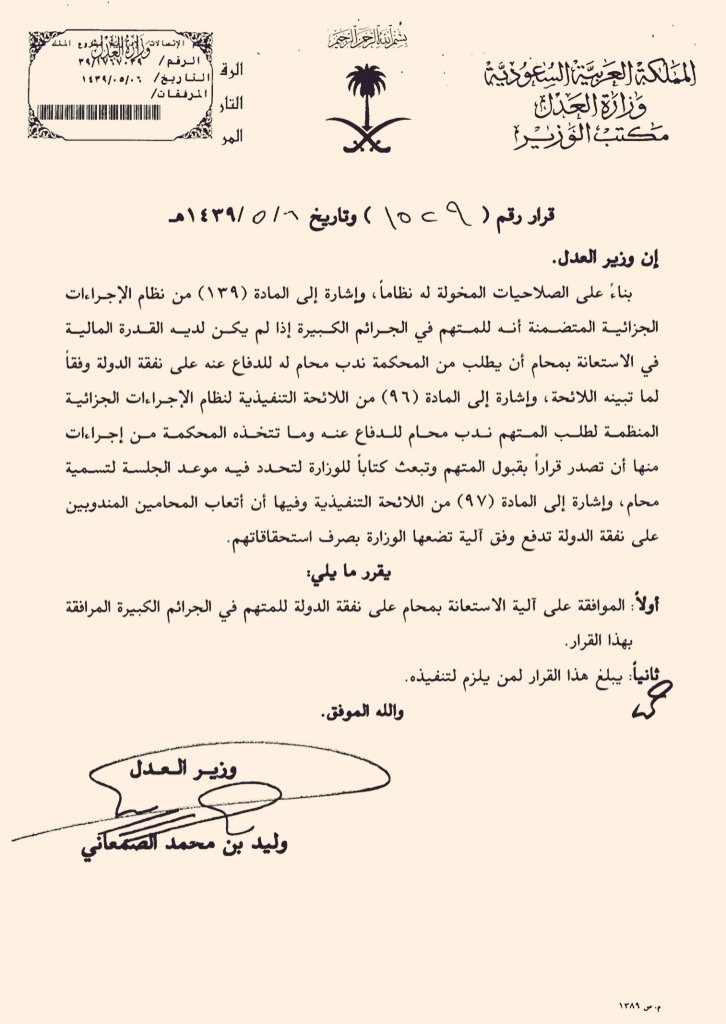 بسم الله الرحمن الرحيم
المملكة العربية السعودية
وزارة العدل
مكتب الوزير
الرق
التار
المر
وزارة العدل
الرقم/
التاريخ/ ١٤٣٩/٠٥/٠٦
المرفقات/
قرار رقم ( ١٥٢٩ ) وتاريخ ٦ / ٥ /١٤٣٩هـ
إن وزير العدل.
بناءً على الصلاحيات المخولة له نظاماً، وإشارة إلى المادة (١٣٩) من نظام الإجراءات
الجزائية المتضمنة أنه للمتهم في الجرائم الكبيرة إذا لم يكن لديه القدرة المالية
في الاستعانة بمحام أن يطلب من المحكمة ندب محام له للدفاع عنه على نفقة الدولة وفقاً
لما تبينه اللائحة، وإشارة إلى المادة (٩٦) من اللائحة التنفيذية لنظام الإجراءات الجزائية
المنظمة لطلب المتهم ندب محام للدفاع عنه وما تتخذه المحكمة من إجراءات
منها أن تصدر قراراً بقبول المتهم وتبعث كتاباً للوزارة لتحدد فيه موعد الجلسة لتسمية
محام، وإشارة إلى المادة (٩٧) من اللائحة التنفيذية وفيها أن أتعاب المحامين المندوبين
على نفقة الدولة تدفع وفق آلية تضعها الوزارة بصرف استحقاقاتهم.
يقرر ما يلي:
أولاً: الموافقة على آلية الاستعانة بمحام على نفقة الدولة للمتهم في الجرائم الكبيرة المرافقة
بهذا القرار.
ثانياً: يبلغ هذا القرار لمن يلزم لتنفيذه.
والله الموفق.
وزير العدل
وليد بن محمد الصمعاني
م. س ١٣٨٩